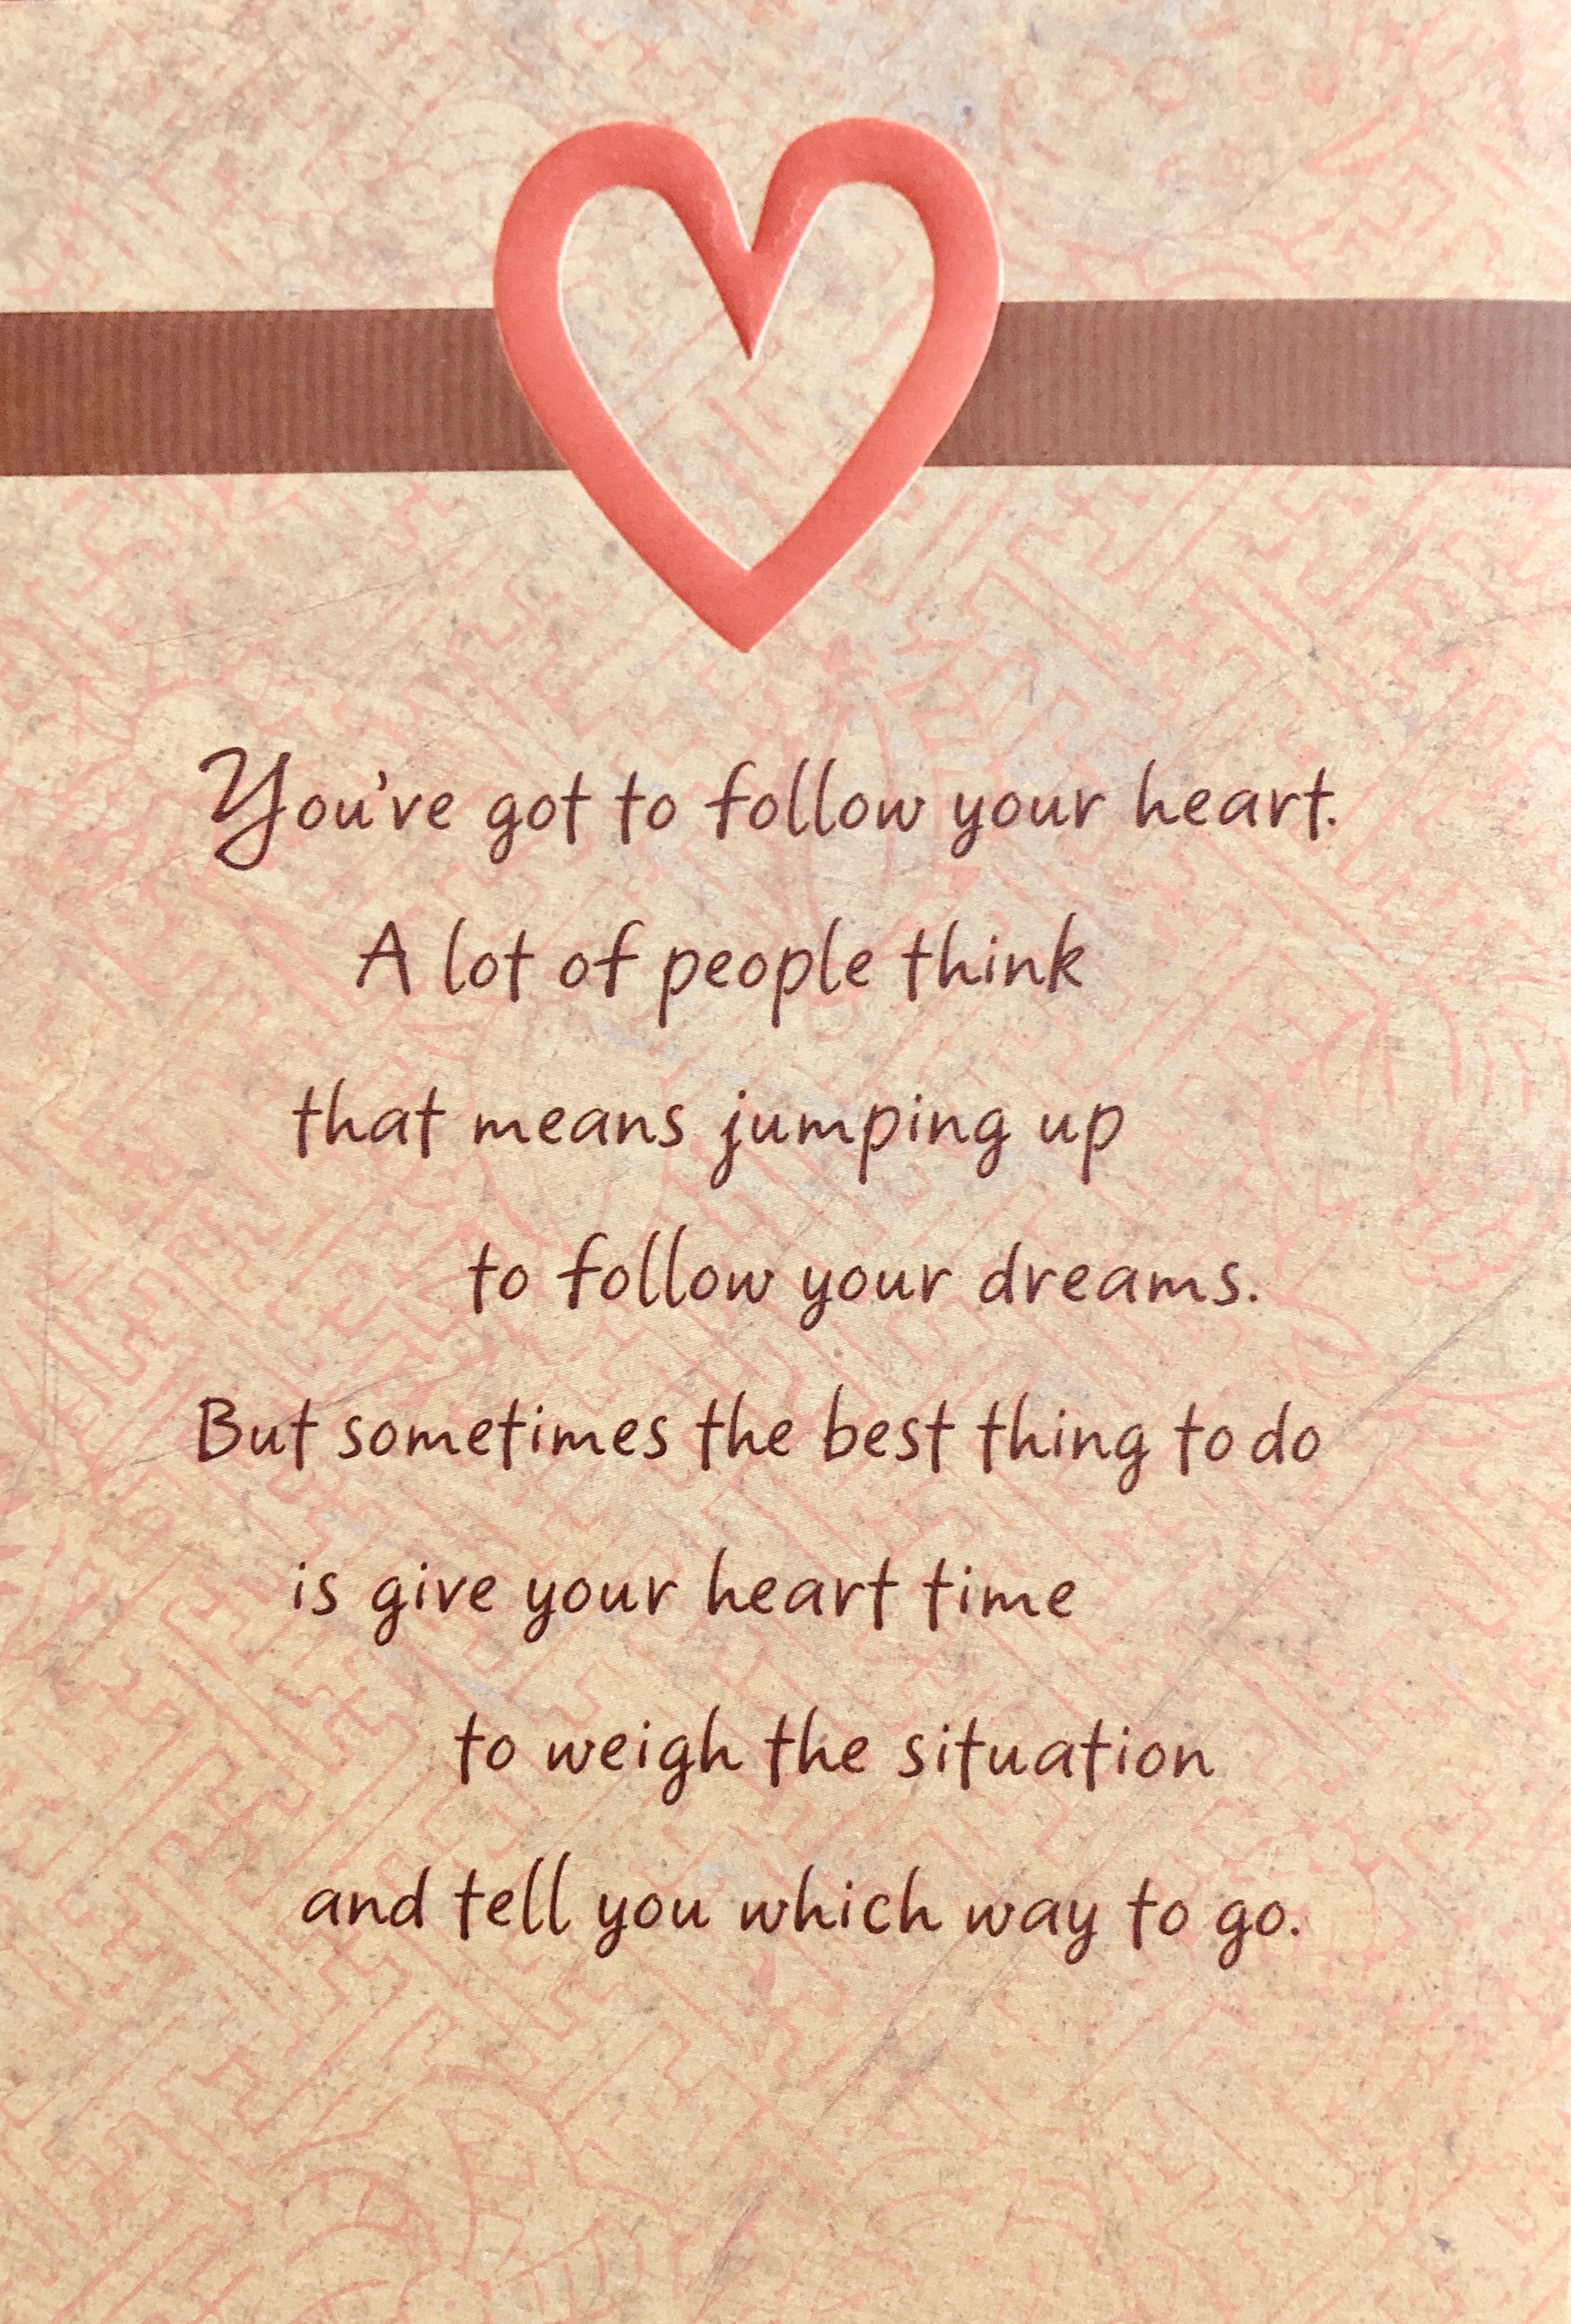 You've got to follow your heart.
A lot of people think
that means jumping up
to follow your dreams.
But sometimes the best thing to do
is give your heart time
to weigh the situation
and tell you which way to go.